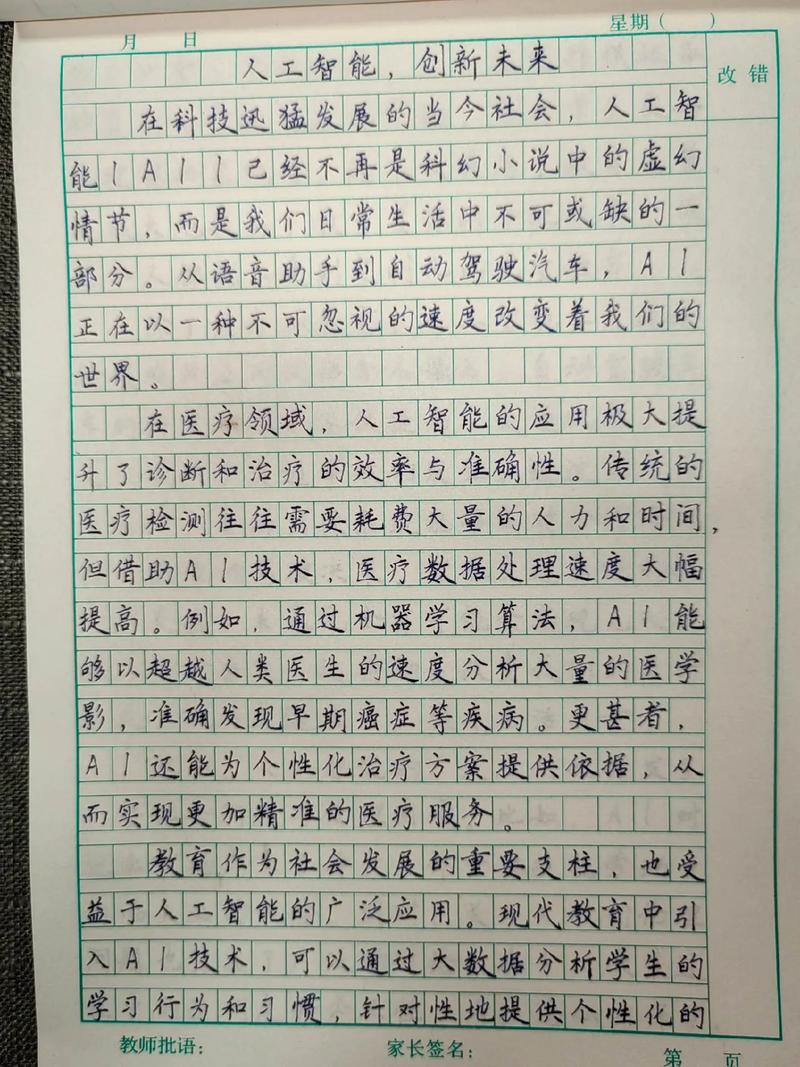 月 日 星期（ ）
改错
人工智能，创新未来
在科技迅猛发展的当今社会，人工智
能（AI）已经不再是科幻小说中的虚幻
情节，而是我们日常生活中不可或缺的一
部分。从语音助手到自动驾驶汽车，AI
正在以一种不可忽视的速度改变着我们的
世界。
在医疗领域，人工智能的应用极大提
升了诊断和治疗的效率与准确性。传统的
医疗检测往往需要耗费大量的人力和时间，
但借助AI技术，医疗数据处理速度大幅
提高。例如，通过机器学习算法，AI能
够以超越人类医生的速度分析大量的医学
影，准确发现早期癌症等疾病。更甚者，
AI还能为个性化治疗方案提供依据，从
而实现更加精准的医疗服务。
教育作为社会发展的重要支柱，也受
益于人工智能的广泛应用。现代教育中引
入AI技术，可以通过大数据分析学生的
学习行为和习惯，针对性地提供个性化的
教师批语： 家长签名： 第 页